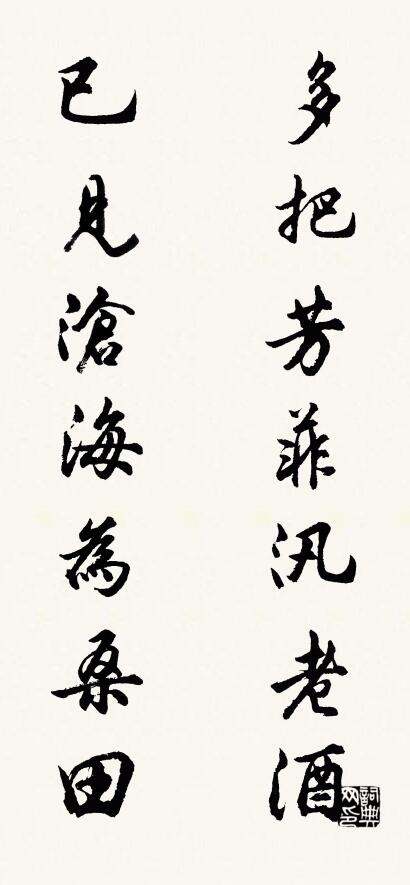 多把芳菲汎老酒
已見滄海為桑田
詞典網印